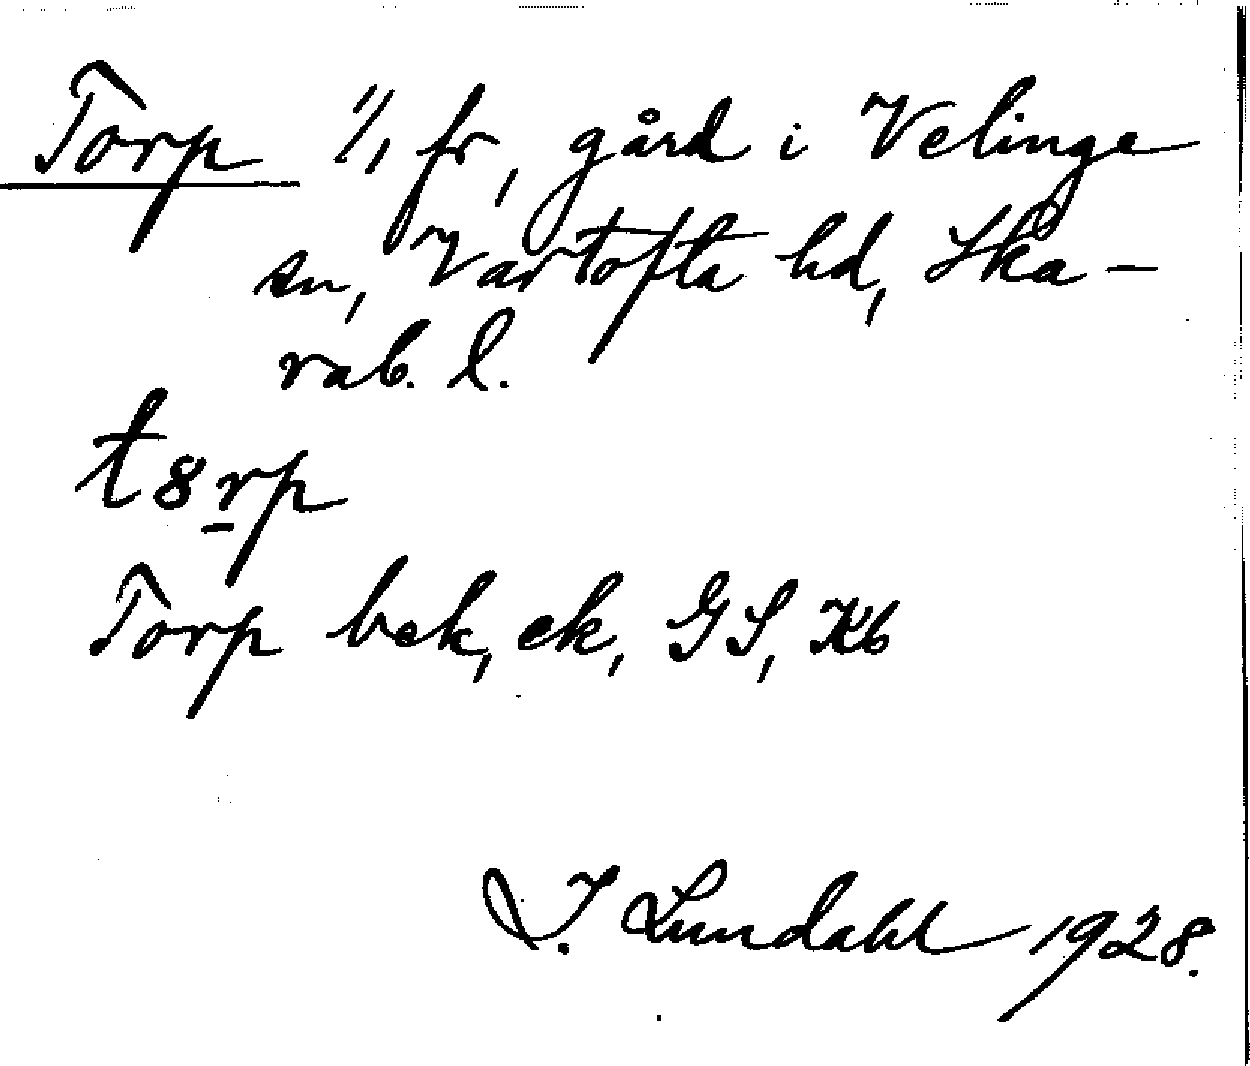 Torp 1/1 fr, gård i Velinge
sn, Vartofta hd, Ska-
rab. l.
t8rp
Torp bek, ek, GS, Kb
I. Lundahl 1928.